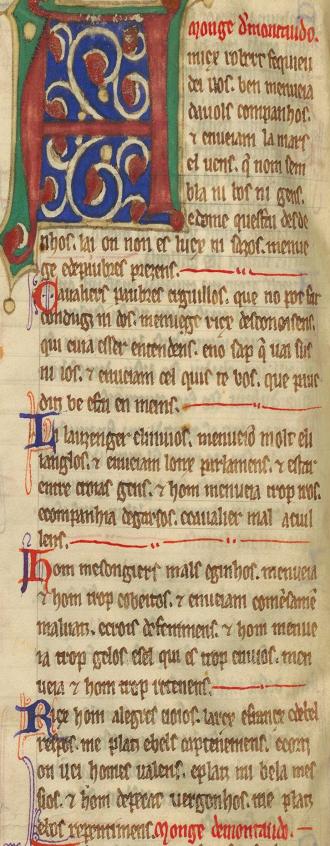 Monge de montaudo.
mice robert sequieu
dei uos. ben menueia
dauols companhos.
⁊ enueiam la mars
el uens. q̄ nom sem
bla ni bos ni gens.
e dome questai desde
nhos. lai on non es lucx ni sazos. menue
ge
Caualiers paubres erguillos. que no pot far
condug ni dos. menuegz ricx desconoisens.
qui cuia esser entendens. e no sap q̄ uai sus
ni ios. ⁊ enueiam cel qui te uos. que paus
ditz be e fai en mens.
Li lauzenger enuios. menueio molt eli
ianglos. ⁊ enueiam lonx parlamens. ⁊ estar
entre croias gens. ⁊ hom menueia trop nos.
e companhia degarsos. e caualier mal acuil
lens.
hom mesongiers mals e ginhos. menueia
⁊ hom trop cobeitos. ⁊ enueiam
maluatz. e crois defenimens. ⁊ hom menue
ia trop gelos. e sel qui es trop enuios. men
ueia ⁊ hom trop retenens.
Ricx hom alegres e ioios. larcx e francx e de bel
respos. me platz e bels captenemens. e cortz
on uei homes ualens. e platz mi bela mes
sios. ⁊ hom depecatz uergonhos. me platz
e bos repentimens. Monge de montaudo.